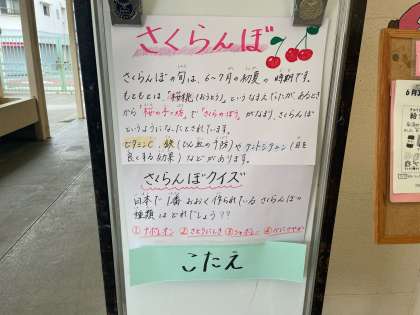 さくらんぼ
さくらんぼの旬は、6〜7月の初夏の時期です。
もともとは、「桜桃(おうとう)」というなまえだったが、あるとき
から「桜の子ども」で「さくらのぼう」がなまり、さくらんぼ
というようになったとされています。
ビタミンC、鉄(ひん血の予防)やアントシアニン(目を
良くする効果)などがあります。
さくらんぼクイズ
日本で1番おおく作られているさくらんぼの
種類はどれでしょう??
①ナポレオン ②さとうにしき ③ ④べにさやか
こたえ
6月